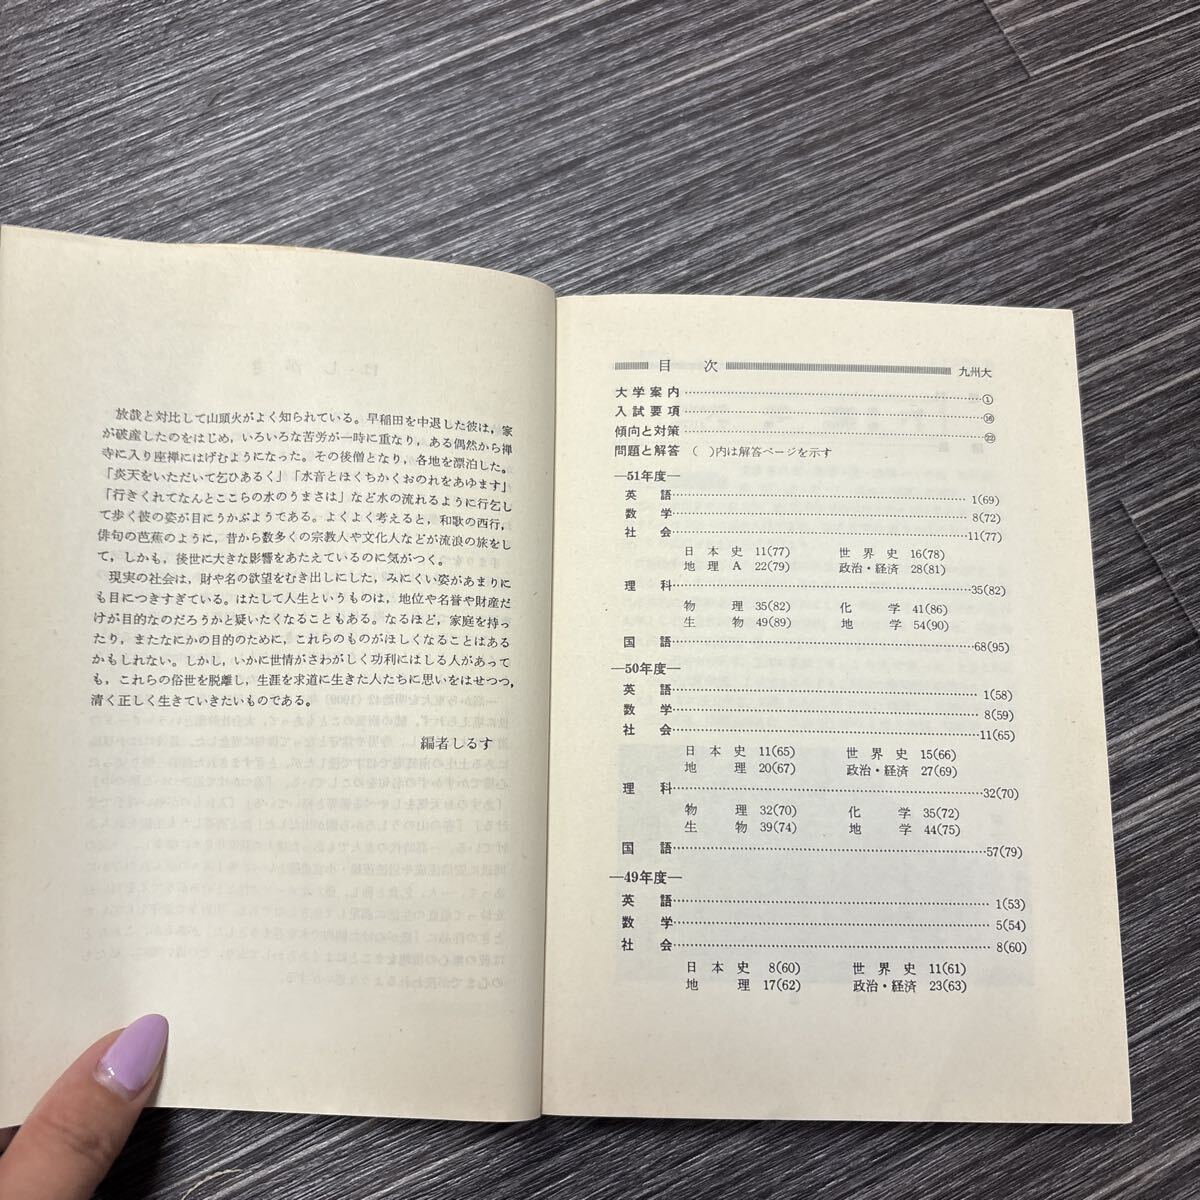 放哉と対比して山頭火がよく知られている。早稲田を中退した彼は，家
が破産したのをはじめ，いろいろな苦労が一時に重なり，ある偶然から禅
寺に入り座禅にはげむようになった。その後僧となり，各地を漂泊した。
「炎天をいただいて乞ひあるく」「水音とほくちかくおのれをあゆます」
「行きくれてなんとここらの水のうまさは」など水の流れるように行乞し
て歩く彼の姿が目にうかぶようである。よくよく考えると，和歌の西行，
俳句の芭蕉のように，昔から数多くの宗教人や文化人などが流浪の旅をし
て，しかも，後世に大きな影響をあたえているのに気がつく。
現実の社会は，財や名の欲望をむき出しにした，みにくい姿があまりに
も目につきすぎている。はたして人生というものは，地位や名誉や財産だ
けが目的なのだろうかと疑いたくなることもある。なるほど，家庭を持っ
たり，またなにかの目的のために，これらのものがほしくなることはある
かもしれない。しかし，いかに世情がさわがしく功利にはしる人があって
も，これらの俗世を脱離し，生涯を求道に生きた人たちに思いをはせつつ，
清く正しく生きていきたいものである。
編者しるす
目 次
九州大
大学案内 ①
入試要項 ⑯
傾向と対策 ㉒
問題と解答 （ ）内は解答ページを示す
—51年度—
英 語 1(69)
数 学 8(72)
社 会 11(77)
日 本 史 11(77) 世 界 史 16(78)
地 理 A 22(79) 政治・経済 28(81)
理 科 35(82)
物 理 35(82) 化 学 41(86)
生 物 49(89) 地 学 54(90)
国 語 68(95)
—50年度—
英 語 1(58)
数 学 8(59)
社 会 11(65)
日 本 史 11(65) 世 界 史 15(66)
地 理 20(67) 政治・経済 27(69)
理 科 32(70)
物 理 32(70) 化 学 35(72)
生 物 39(74) 地 学 44(75)
国 語 57(79)
—49年度—
英 語 1(53)
数 学 5(54)
社 会 8(60)
日 本 史 8(60) 世 界 史 11(61)
地 理 17(62) 政治・経済 23(63)